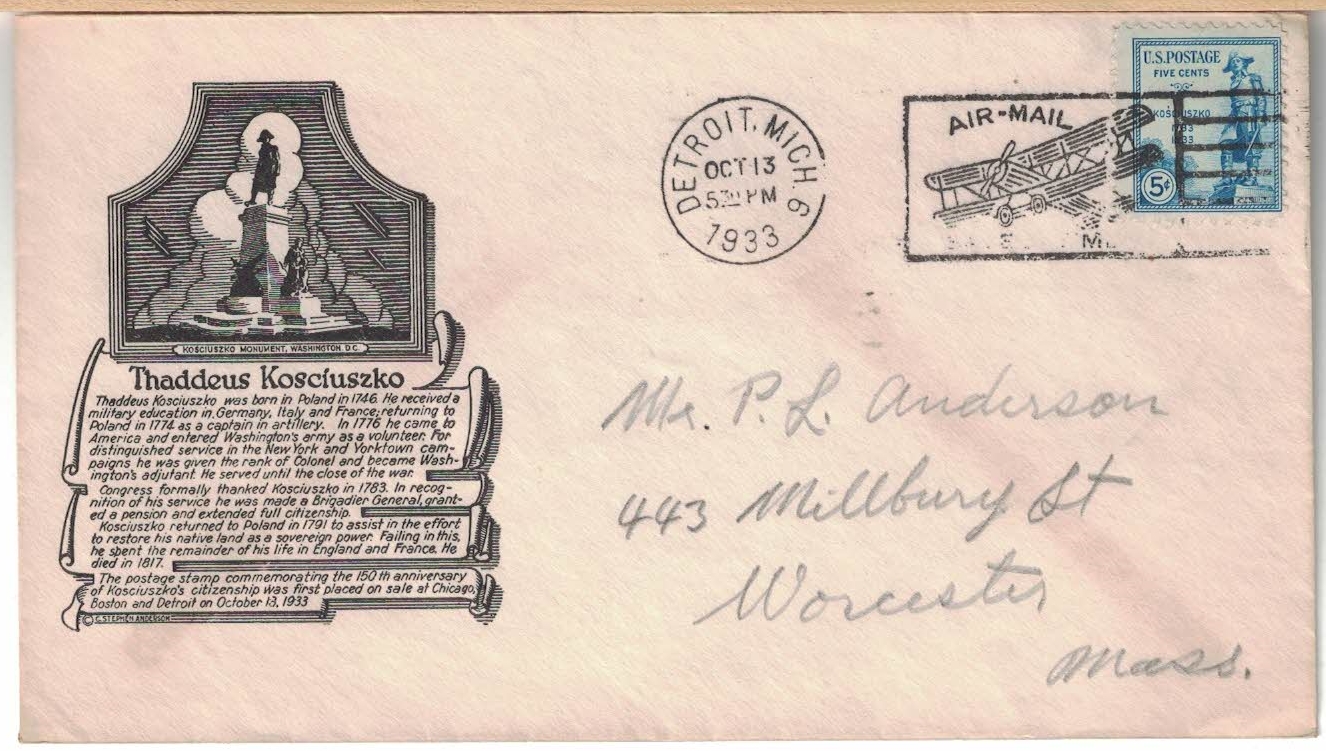 KOSCIUSZKO MONUMENT, WASHINGTON D.C.
Thaddeus Kosciuszko
Thaddeus Kosciuszko was born in Poland in 1746. He received a
military education in, Germany, Italy and France; returning to
Poland in 1774 as a captain in artillery. In 1776 he came to
America and entered Washington's army as a volunteer. For
distinguished service in the New York and Yorktown cam-
paigns he was given the rank of Colonel and became Wash-
ington's adjutant. He served until the close of the war.
Congress formally thanked Kosciuszko in 1783. In recog-
nition of his service he was made a Brigadier General, grant-
ed a pension and extended full citizenship.
Kosciuszko returned to Poland in 1791 to assist in the effort
to restore his native land as a sovereign power. Failing in this,
he spent the remainder of his life in England and France. He
died in 1817.
The postage stamp commemorating the 150th anniversary
of Kosciuszko's citizenship was first placed on sale at Chicago,
Boston and Detroit on October 13, 1933
© C. STEPHEN ANDERSON
DETROIT, MICH. 6
OCT 13
530 PM
1933
AIR-MAIL
U.S. POSTAGE
FIVE CENTS
KOSCIUSZKO
1783
1933
5¢
Mr. P. L. Anderson
443 Millbury St
Worcester
Mass.